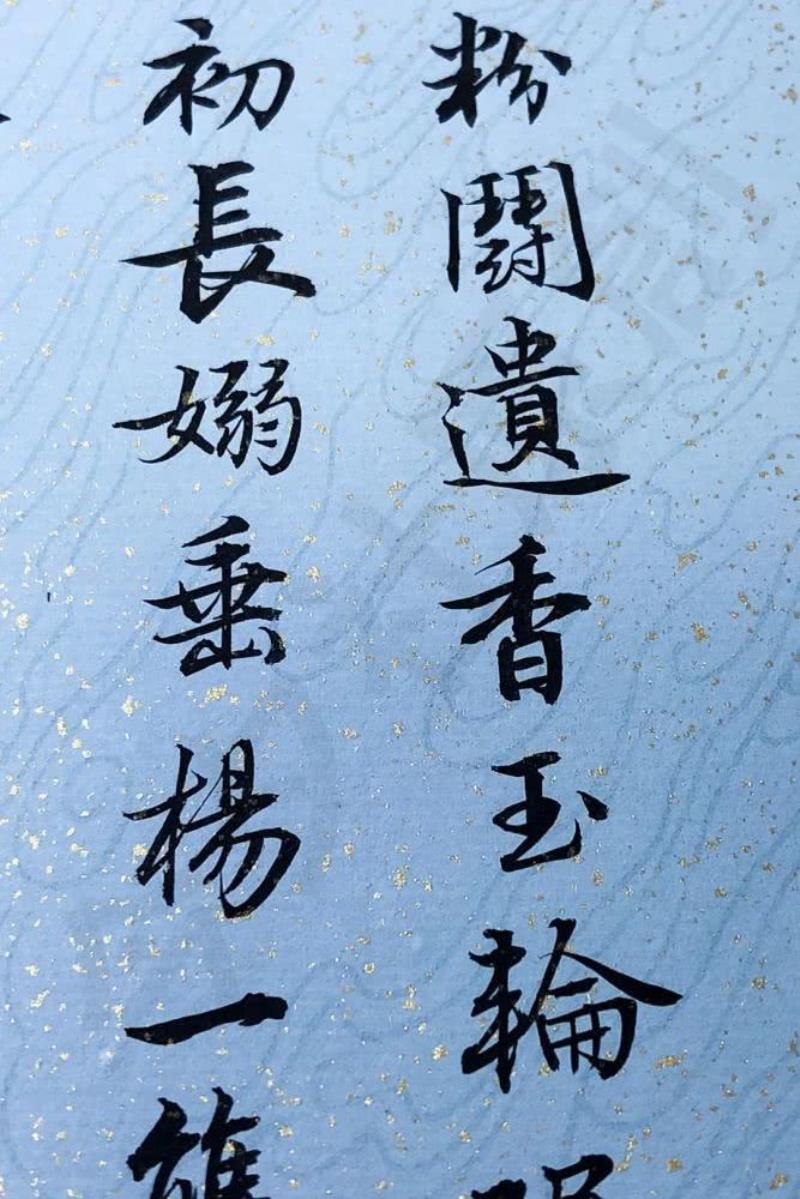 粉鬪遺香玉輪
初長嫋垂楊一